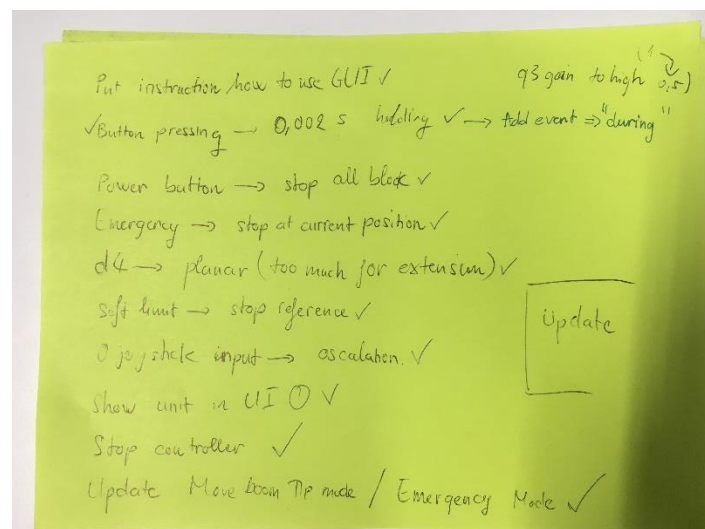 Put instruction how to use GUI ✓
q3 gain to high (1 → 0,5)
✓ Button pressing → 0,002 s holding ✓ → Add event ⇒ "during"
Power button → stop all block ✓
Emergency → stop at current position ✓
d4 → planar (too much for extension) ✓
Soft limit → stop reference ✓
0 joystick input → oscalation. ✓
Show unit in UI ✓
Stop controller ✓
Update Move boom Tip mode / Emergency Mode ✓
Update